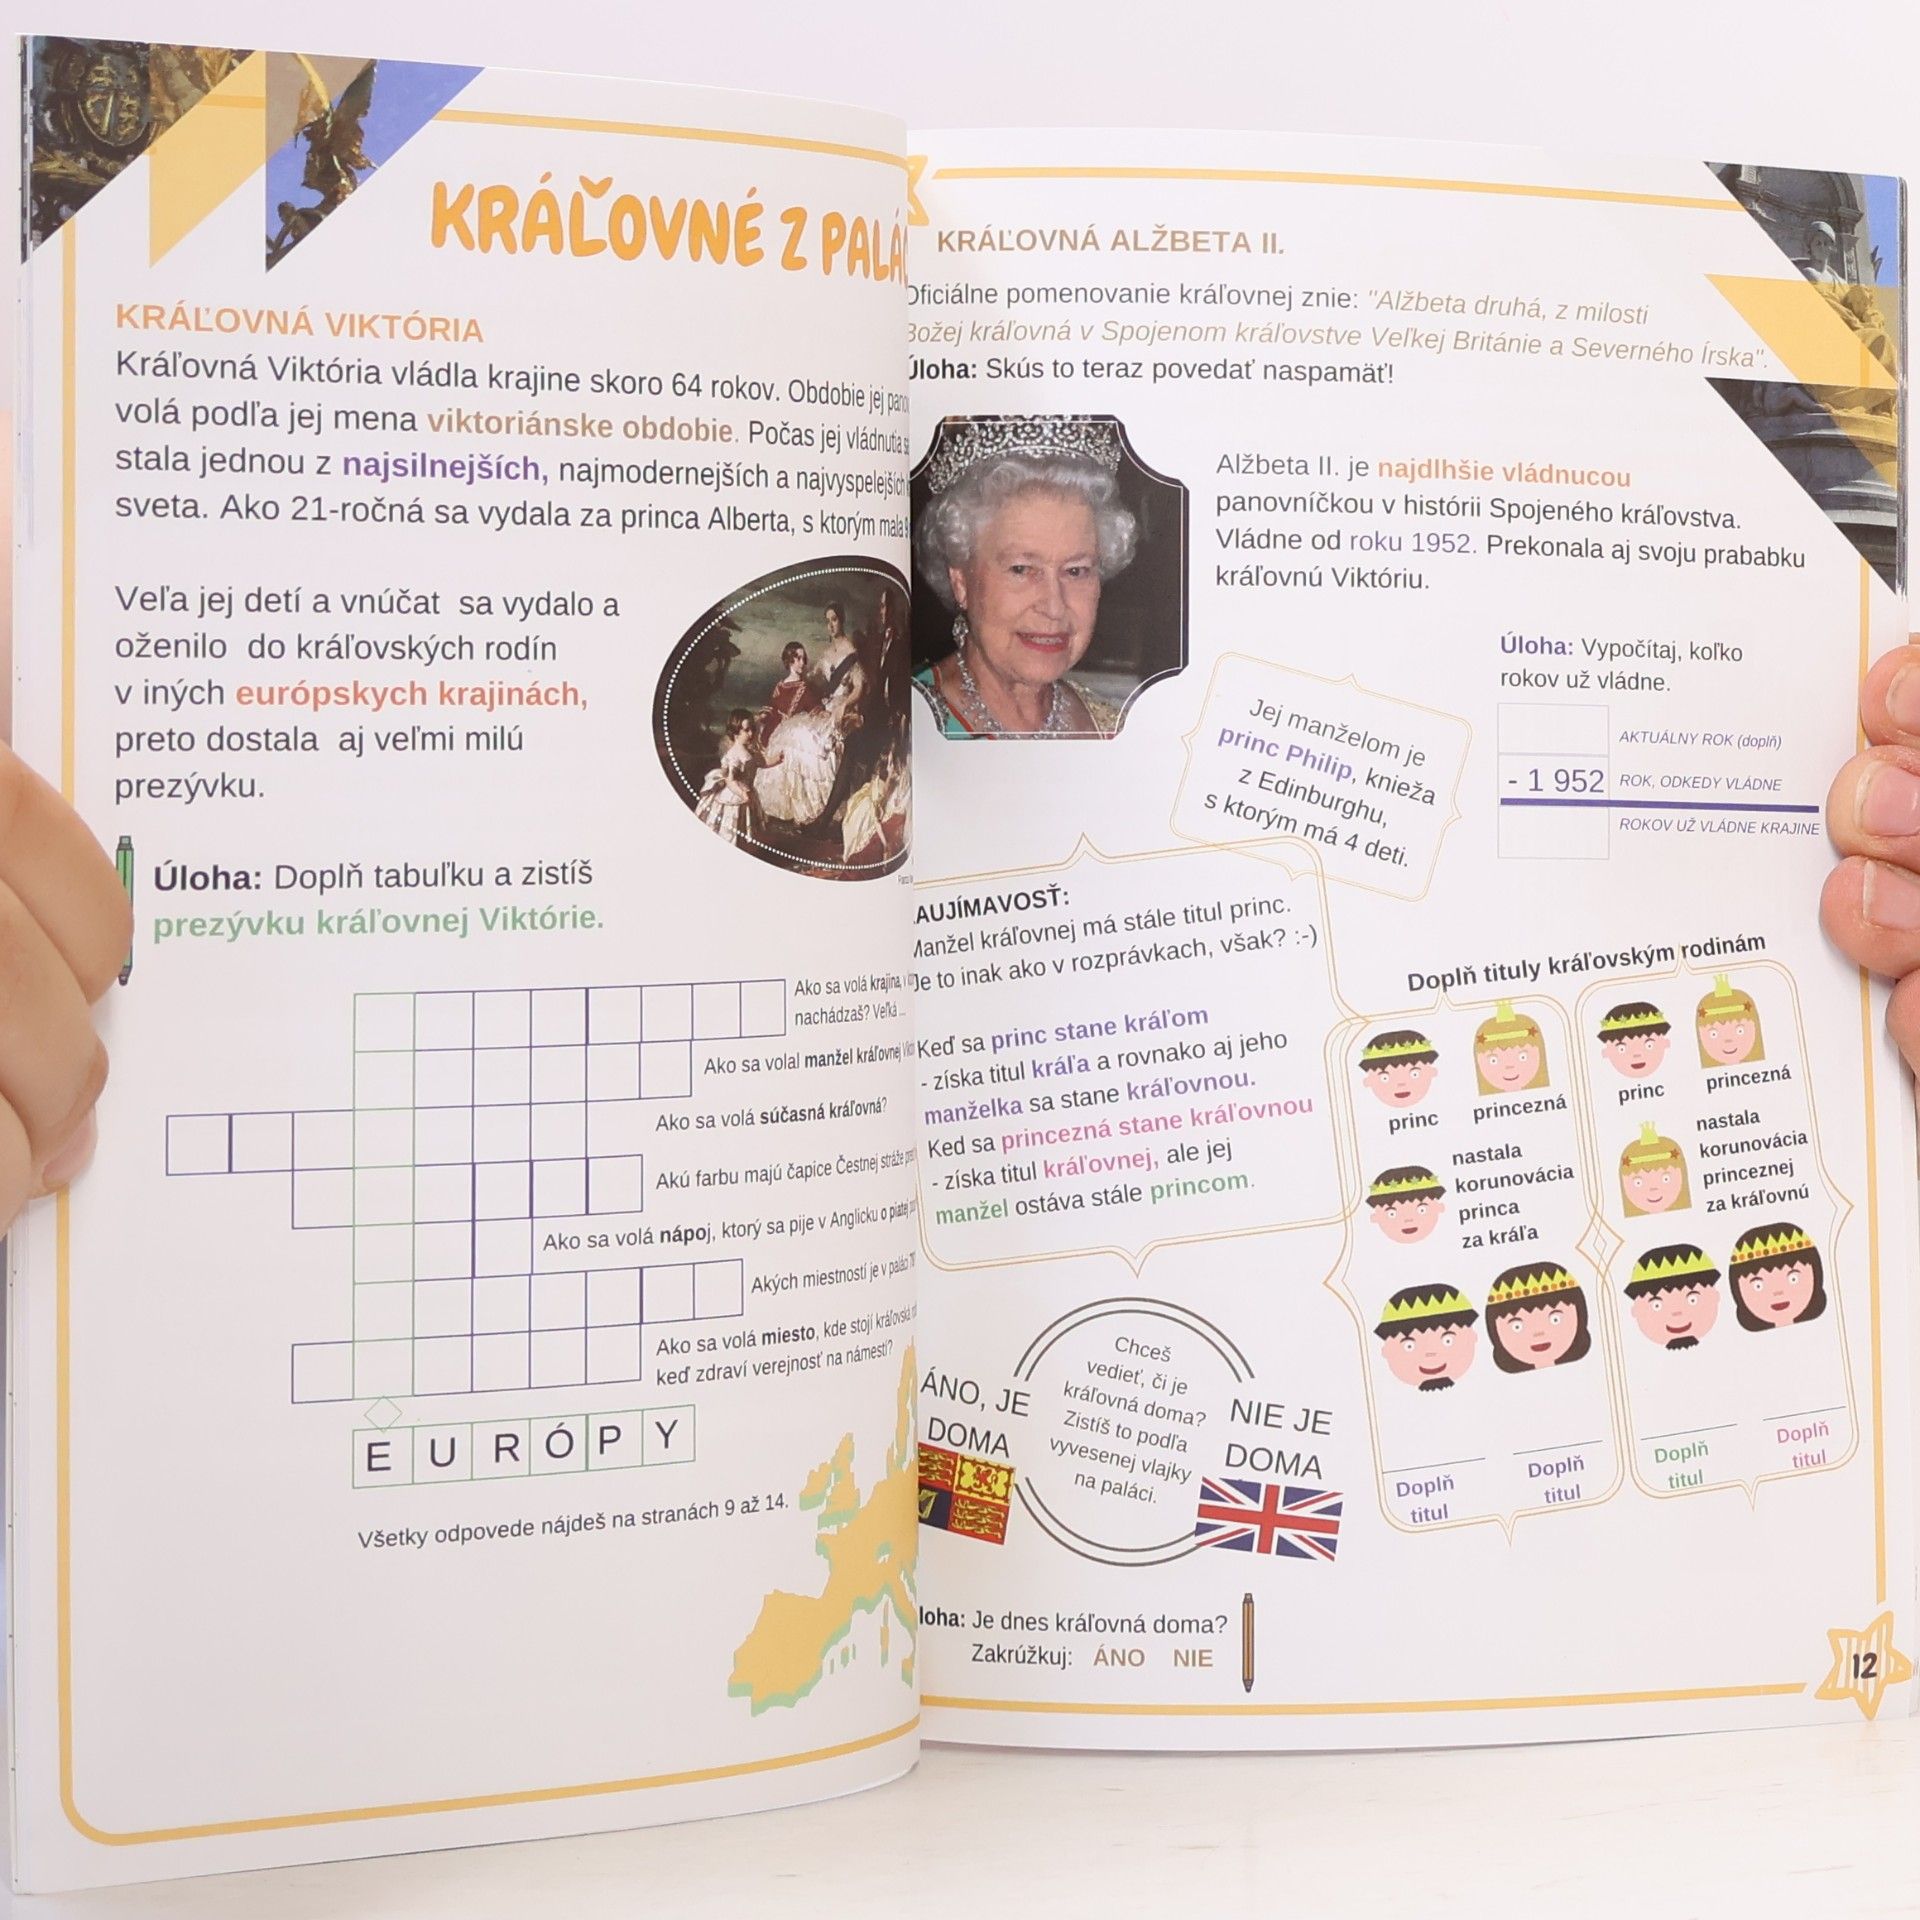 KRÁĽOVNÉ Z
KRÁĽOVNÁ VIKTÓRIA
Kráľovná Viktória vládla krajine skoro 64 rokov. Obdobie jej
volá podľa jej mena viktoriánske obdobie. Počas jej vládnutia
stala jednou z najsilnejších, najmodernejších a najvyspelejších
sveta. Ako 21-ročná sa vydala za princa Alberta, s ktorým mala 9
Veľa jej detí a vnúčat sa vydalo a
oženilo do kráľovských rodín
v iných európskych krajinách,
preto dostala aj veľmi milú
prezývku.
Úloha: Doplň tabuľku a zistíš
prezývku kráľovnej Viktórie.
Ako sa volá krajina,
nachádzaš? Veľká ...
Ako sa volal manžel kráľovnej
Ako sa volá súčasná kráľovná?
Akú farbu majú čapice Čestnej stráže
Ako sa volá nápoj, ktorý sa pije v Anglicku o piatej
Akých miestností je v paláci
Ako sa volá miesto, kde stojí kráľovská
keď zdraví verejnosť na námestí?
E U R Ó P Y
Všetky odpovede nájdeš na stranách 9 až 14.
KRÁĽOVNÁ ALŽBETA II.
Oficiálne pomenovanie kráľovnej znie: "Alžbeta druhá, z milosti
Božej kráľovná v Spojenom kráľovstve Veľkej Británie a Severného Írska".
Úloha: Skús to teraz povedať naspamäť!
Alžbeta II. je najdlhšie vládnucou
panovníčkou v histórii Spojeného kráľovstva.
Vládne od roku 1952. Prekonala aj svoju prababku
kráľovnú Viktóriu.
Úloha: Vypočítaj, koľko
rokov už vládne.
AKTUÁLNY ROK (doplň)
- 1 952 ROK, ODKEDY VLÁDNE
ROKOV UŽ VLÁDNE KRAJINE
Jej manželom je
princ Philip, knieža
z Edinburghu,
s ktorým má 4 deti.
AUJÍMAVOSŤ:
Manžel kráľovnej má stále titul princ.
Je to inak ako v rozprávkach, však? :-)
Keď sa princ stane kráľom
- získa titul kráľa a rovnako aj jeho
manželka sa stane kráľovnou.
Ked sa princezná stane kráľovnou
- získa titul kráľovnej, ale jej
manžel ostáva stále princom.
Doplň tituly kráľovským rodinám
princ princezná
nastala
korunovácia
princa
za kráľa
Doplň
titul
Doplň
titul
princ princezná
nastala
korunovácia
princeznej
za kráľovnú
Doplň
titul
Doplň
titul
ÁNO, JE
DOMA
Chceš
vedieť, či je
kráľovná doma?
Zistíš to podľa
vyvesenej vlajky
na paláci.
NIE JE
DOMA
loha: Je dnes kráľovná doma?
Zakrúžkuj: ÁNO NIE
12